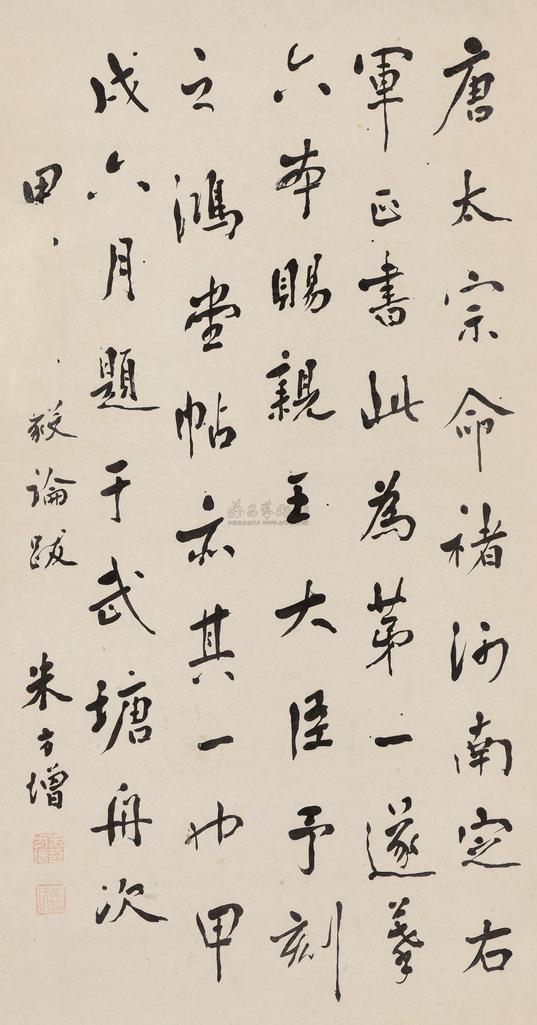 唐太宗命褚河南定右
軍正書此為第一遂摹
六本賜親王大臣予刻
之鴻堂帖亦其一也甲
戌六月題于武塘舟次
甲 毅論跋 朱方增